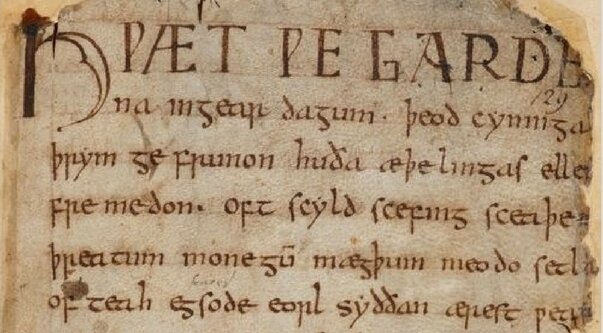 HǷÆT ǷE GARDE
129
na ingear dagum · þeod cyninga
þrym ge frunon huða æþelingas elle
fre medon · oft scyld scefing sceaþe
þreatum monegū mægþum meodo setla
of teah egsode eorl syððan ærest